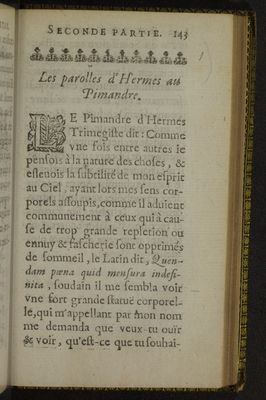 SECONDE PARTIE. 143
Les parolles d'Hermes au
Pimandre.
LE Pimandre d'Hermes
Trimegiste dit: Comme
vne fois entre autres ie
pensois à la nature des choses, &
esleuois la subtilité de mon esprit
au Ciel, ayant lors mes sens cor-
porels assoupis, comme il aduient
communement à ceux qui à cau-
se de trop grande repletion ou
ennuy & fascherie sont opprimés
de sommeil, le Latin dit, Quen-
dam pœna quid mensura indefi-
nita, soudain il me sembla voir
vne fort grande statuë corporel-
le, qui m'appellant par mon nom
me demanda que veux-tu ouïr
& voir, qu'est-ce que tu souhai-